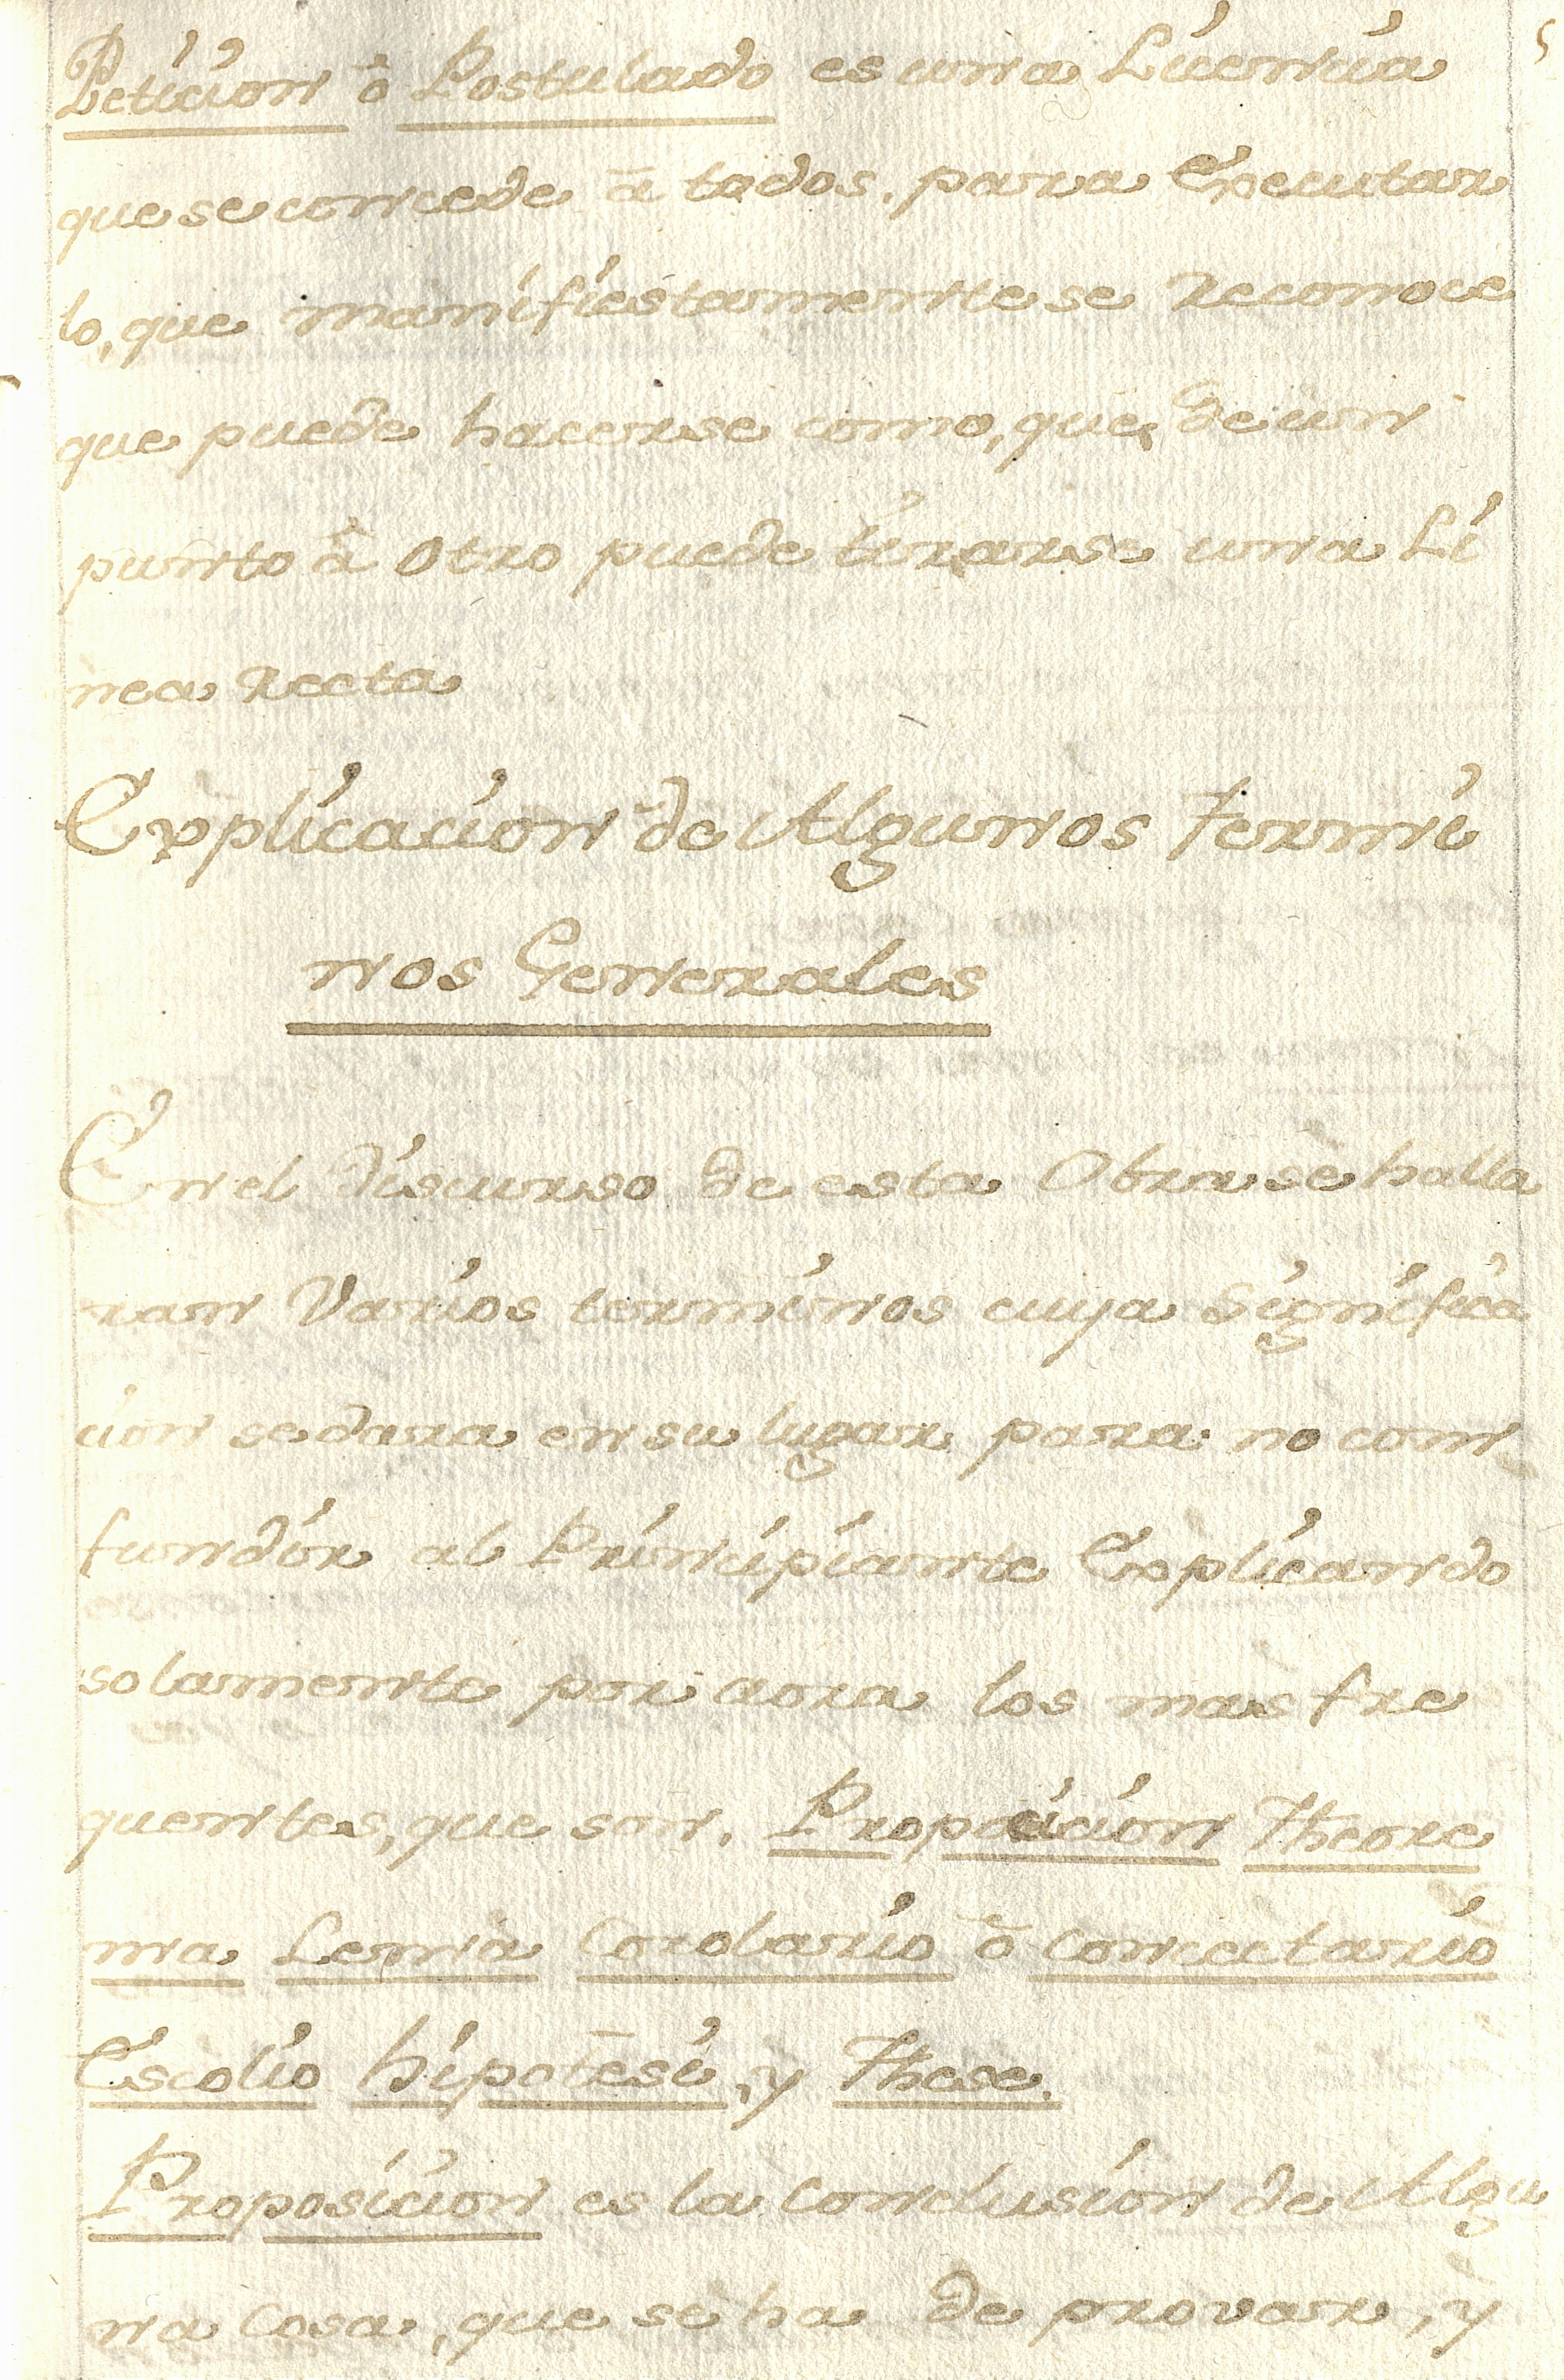 Petición ò Postulado es una Licencia
que se concede à todos. para Executar
lo, que manifiestamente se Reconoce
que puede hacerse como, que de un
punto à otro puede tirarse una Li
nea Recta
Explicacion de Algunos Termi
nos Generales
En el discurso de esta Obra se halla
ran Varios terminos cuya Significa
cion se dara en su lugar para no con
fundir al Principiante Explicando
solamente por aora los mas fre
quentes, que son. Propocicion Theore
ma Lema Corolario ò Concectario
Escolio hipotesi, y These.
Proposicion es la Conclusion de Algu
na Cosa, que se ha de provar, y